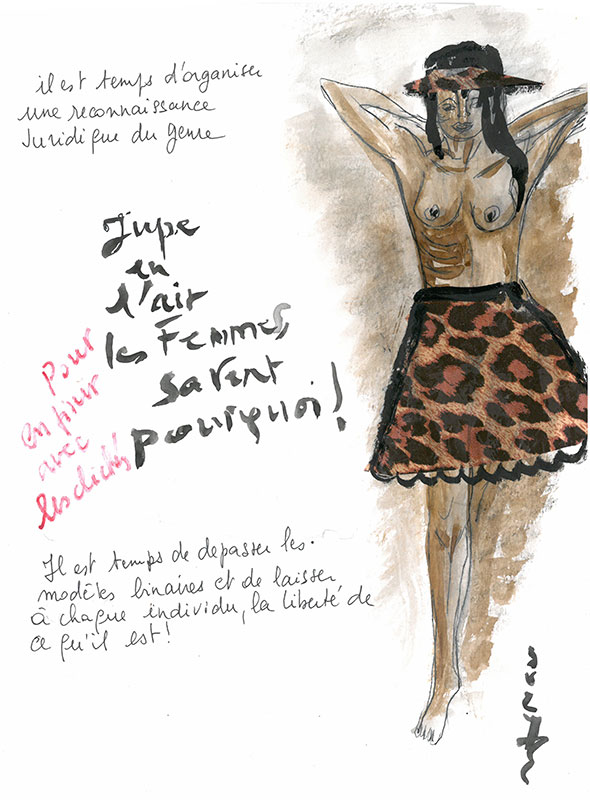 il est temps d'organiser
une reconnaissance
Juridique du genre
Jupe
en
l'air
les Femmes,
savent
pourquoi!
Pour
en finir
avec
les clichés
Il est temps de depasser les
modèles binaires et de laisser,
à chaque individu, la liberté de
ce qu'il est!